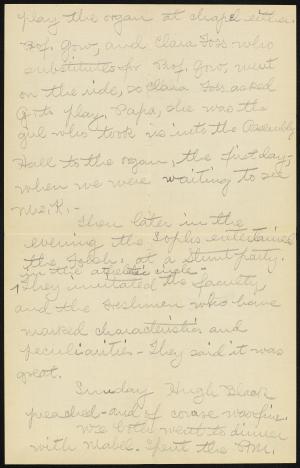 play the organ at chapel either.
Prof. Gow, and Clara Foss who
substitutes for Prof. Gow, went
on the ride, so Clara Foss asked
G- to play. Papa, she was the
girl who took us into the Assembly
Hall to the organ, the first day,
when we were waiting to see
Mrs. K. -
Then later in the
evening the Sophs entertained
the Freshs. at a Stunt-party.
in the athletic circle -
They imitated the faculty
and the Freshmen who have
marked characteristics and
peculiarities - They said it was
great.
Sunday Hugh Black
preached - and of corase was fine.
We later went to dinner
with Mabel. Spent the P.M.